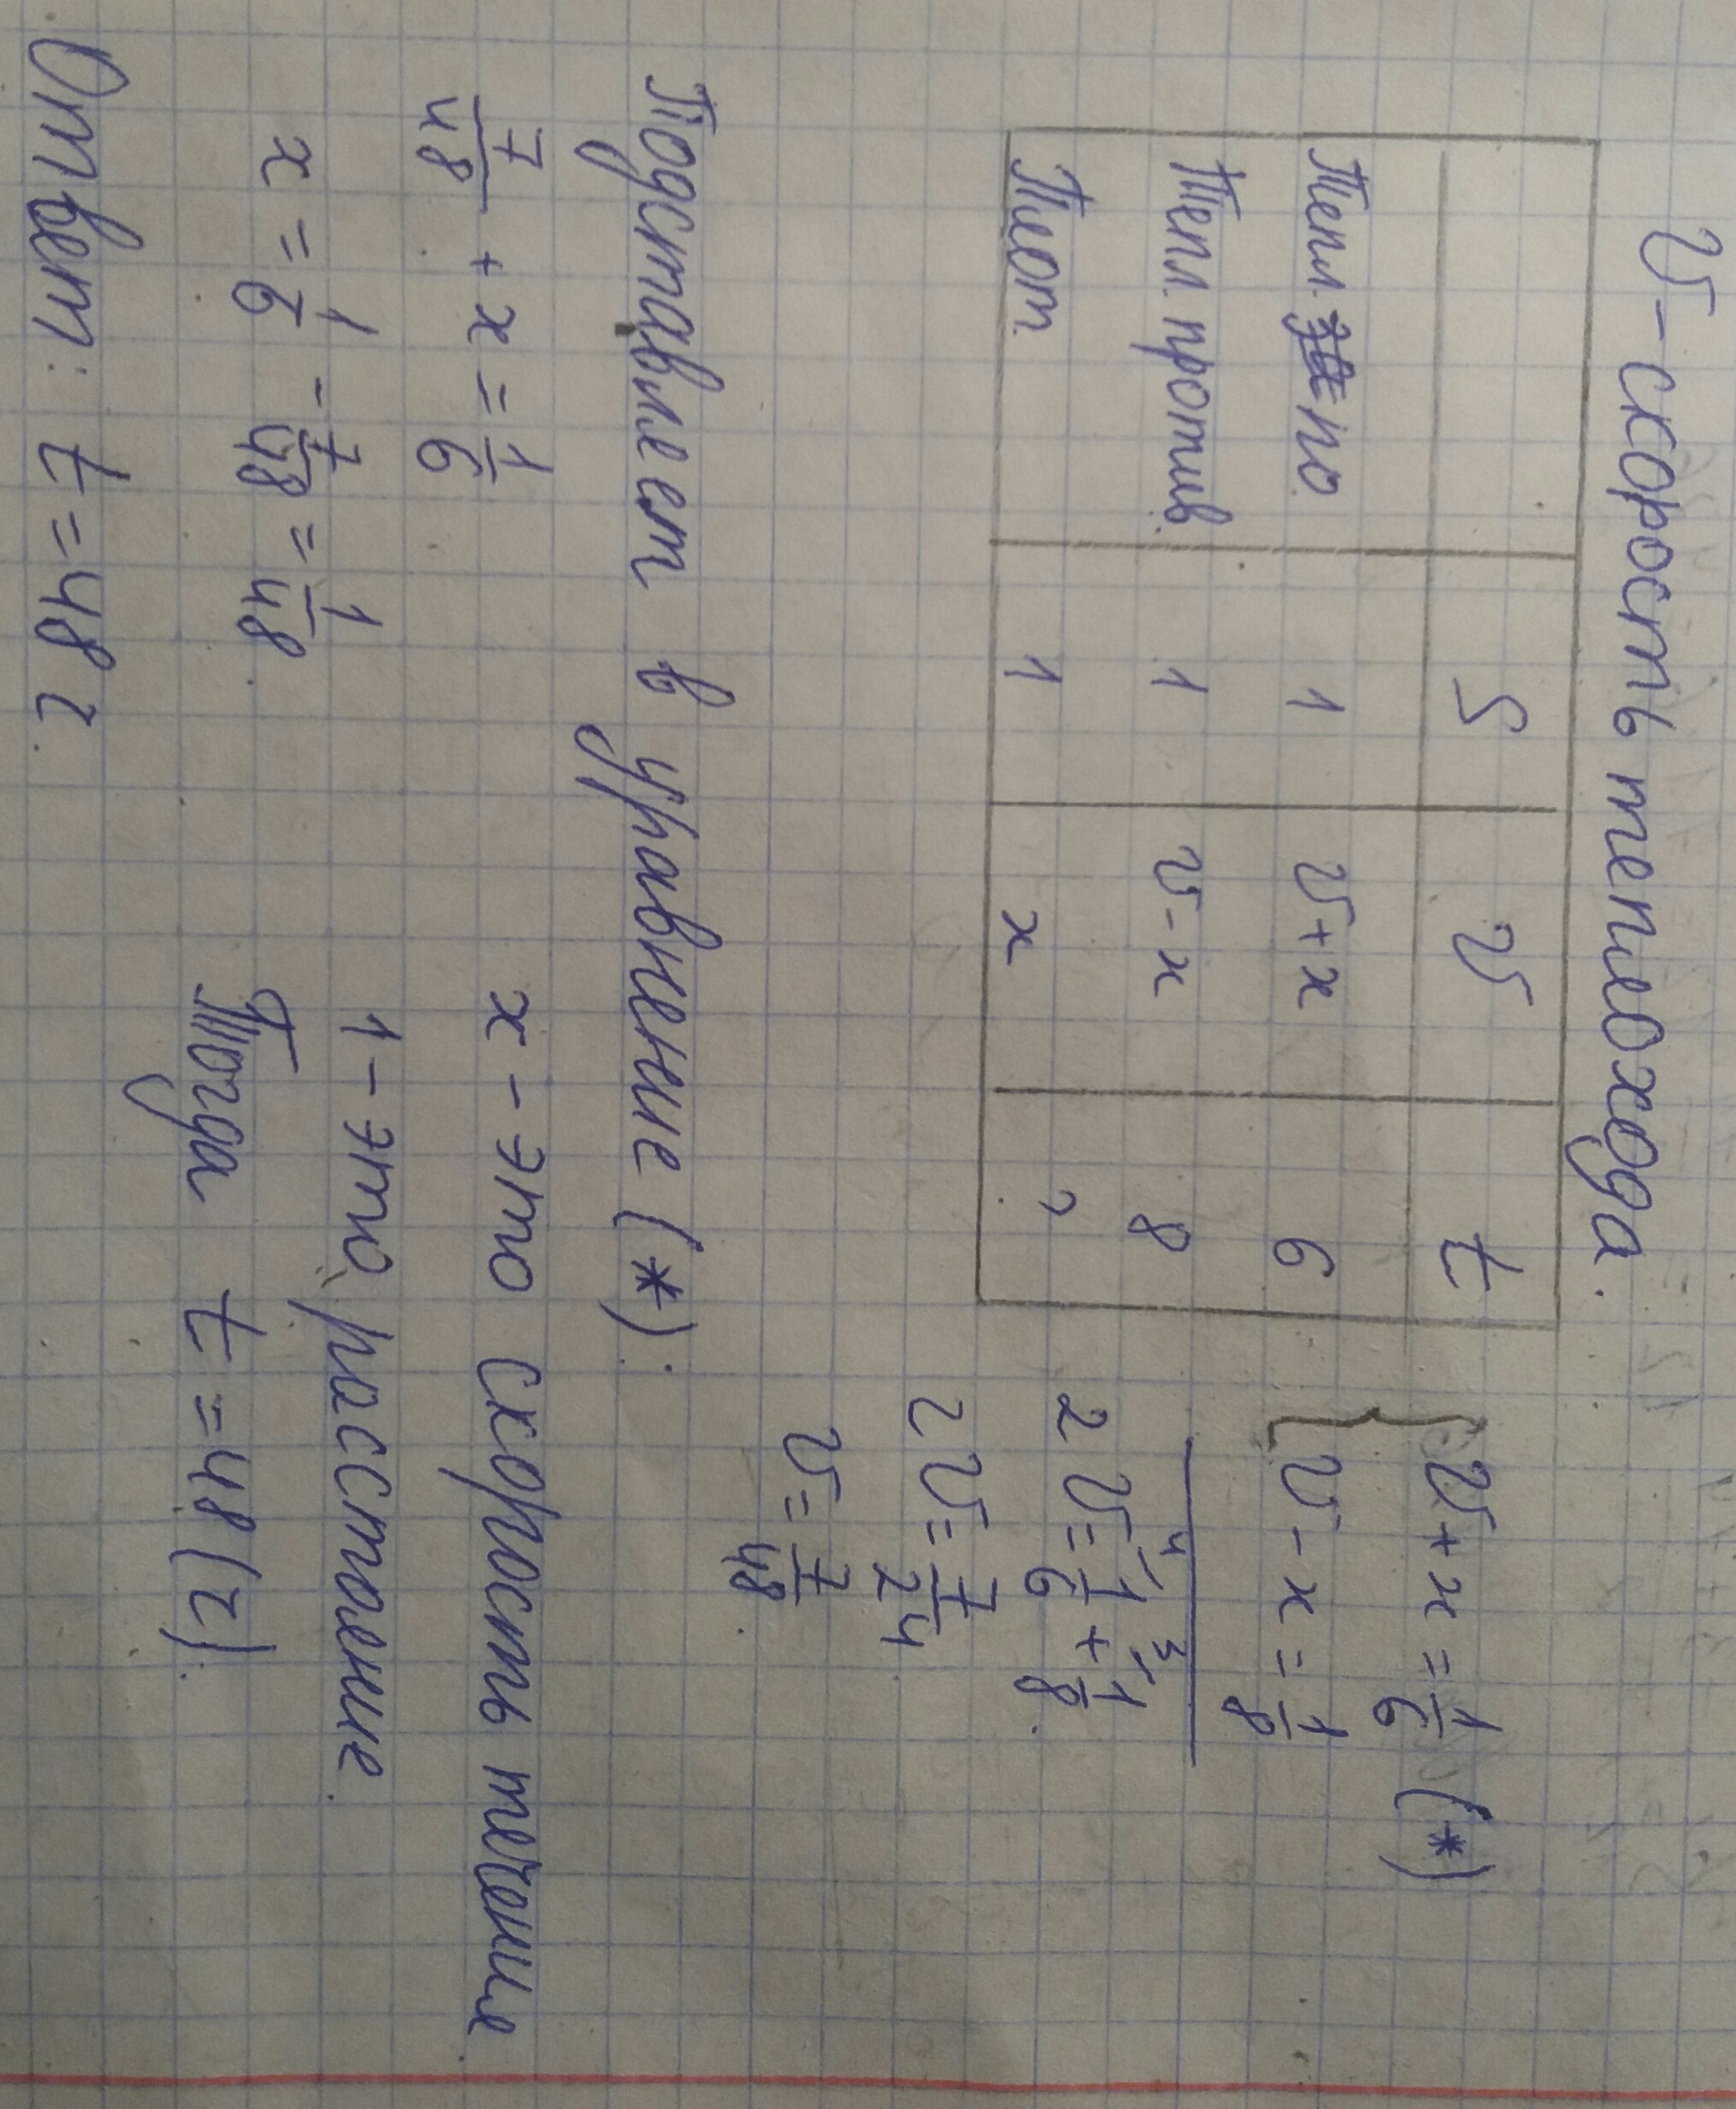 V - скорость теплохода.
S V t
Тепл. по 1 V + x 6
Тепл. против 1 V - x 8
Плот. 1 x ?
V + x = 1/6 (*)
V - x = 1/8
2V = 1/6 + 1/8.
2V = 7/24
V = 7/48.
Подставлеет в уравнение (*):
7/48 + x = 1/6
x = 1/6 - 7/48 = 1/48.
x - это скорость течение
1 - это расстоение.
Тогда t = 48 (ч).
Ответ: t = 48 ч.